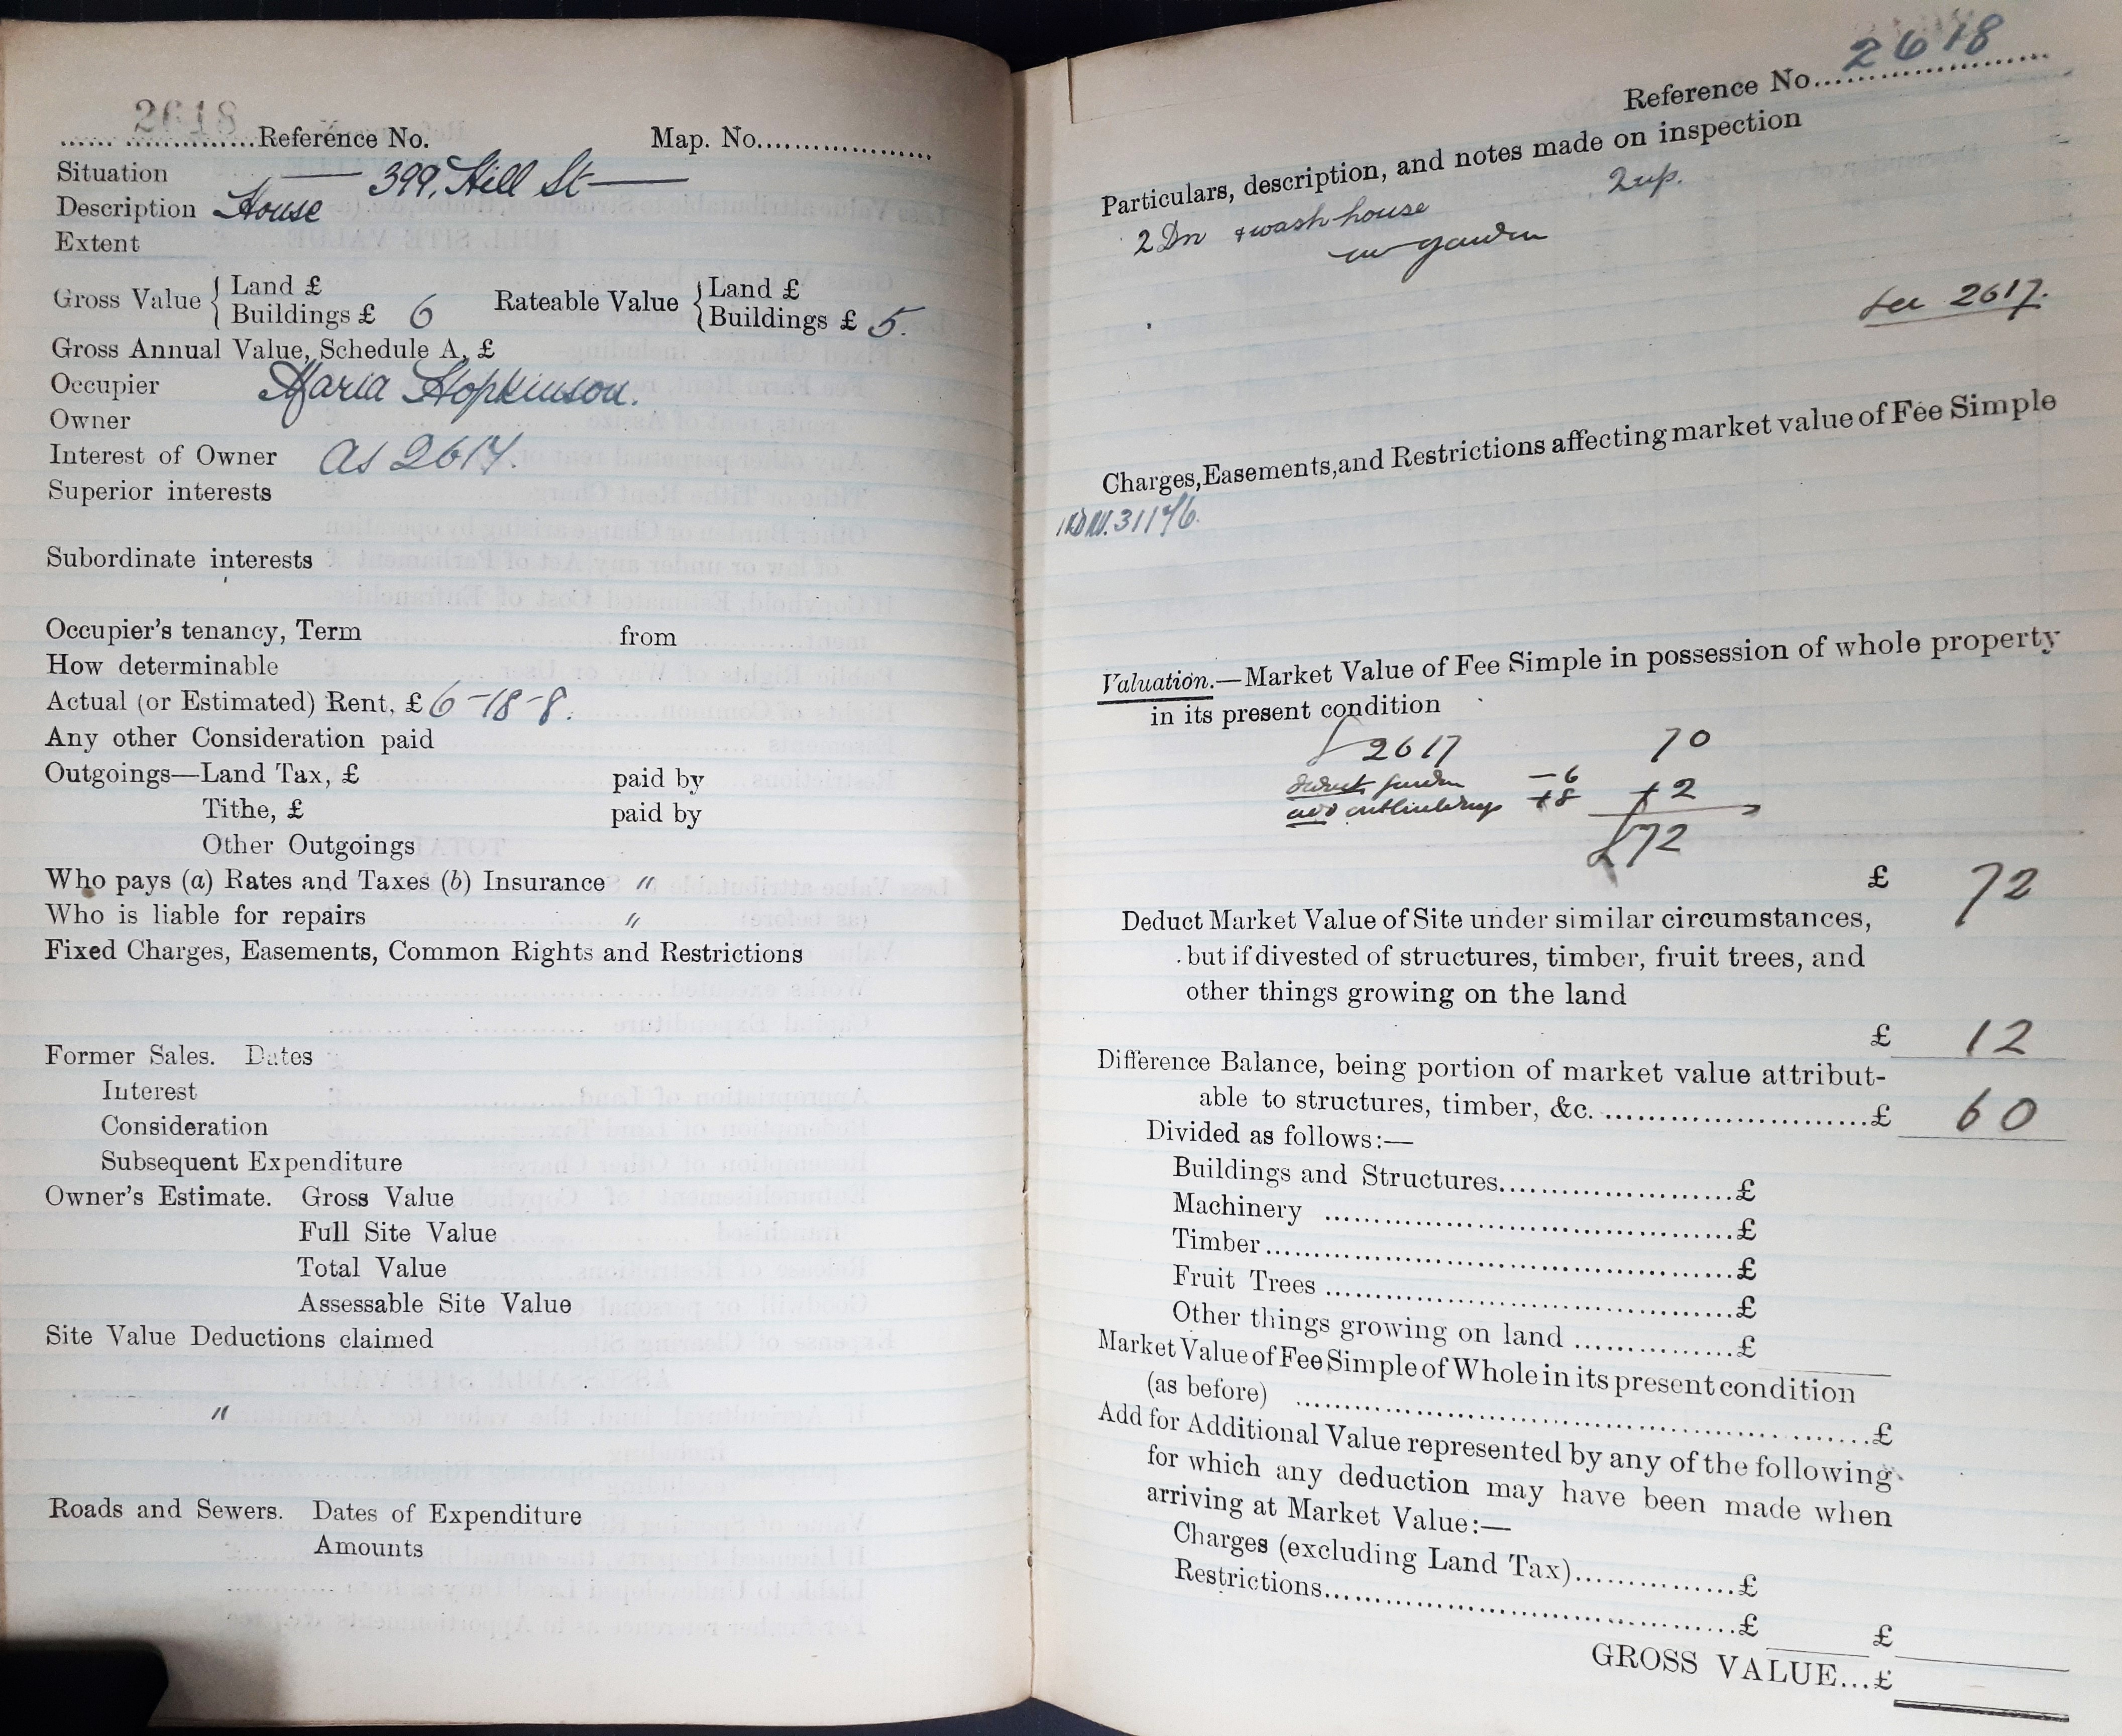 2618
Reference No. Map. No.
Situation — 399, Hill St —
Description House
Extent
Gross Value { Land £ Rateable Value { Land £
Buildings £ 6 Buildings £ 5.
Gross Annual Value, Schedule A, £
Occupier Maria Hopkinson.
Owner
Interest of Owner As 2617.
Superior interests
Subordinate interests
Occupier's tenancy, Term from
How determinable
Actual (or Estimated) Rent, £ 6-18-8.
Any other Consideration paid
Outgoings—Land Tax, £ paid by
Tithe, £ paid by
Other Outgoings
Who pays (a) Rates and Taxes (b) Insurance "
Who is liable for repairs "
Fixed Charges, Easements, Common Rights and Restrictions
Former Sales. Dates
Interest
Consideration
Subsequent Expenditure
Owner's Estimate. Gross Value
Full Site Value
Total Value
Assessable Site Value
Site Value Deductions claimed
"
Roads and Sewers. Dates of Expenditure
Amounts
Reference No. 2618
Particulars, description, and notes made on inspection
2 Dn & wash house 2 up.
no garden
See 2617.
Charges, Easements, and Restrictions affecting market value of Fee Simple
Valuation.—Market Value of Fee Simple in possession of whole property
in its present condition
2617 70
deduct garden -6
add outbuildings +8 +2
£72
£ 72
Deduct Market Value of Site under similar circumstances,
but if divested of structures, timber, fruit trees, and
other things growing on the land
£ 12
Difference Balance, being portion of market value attribut-
able to structures, timber, &c. £ 60
Divided as follows:—
Buildings and Structures £
Machinery £
Timber £
Fruit Trees £
Other things growing on land £
Market Value of Fee Simple of Whole in its present condition
(as before) £
Add for Additional Value represented by any of the following
for which any deduction may have been made when
arriving at Market Value:—
Charges (excluding Land Tax) £
Restrictions £ £
GROSS VALUE...£